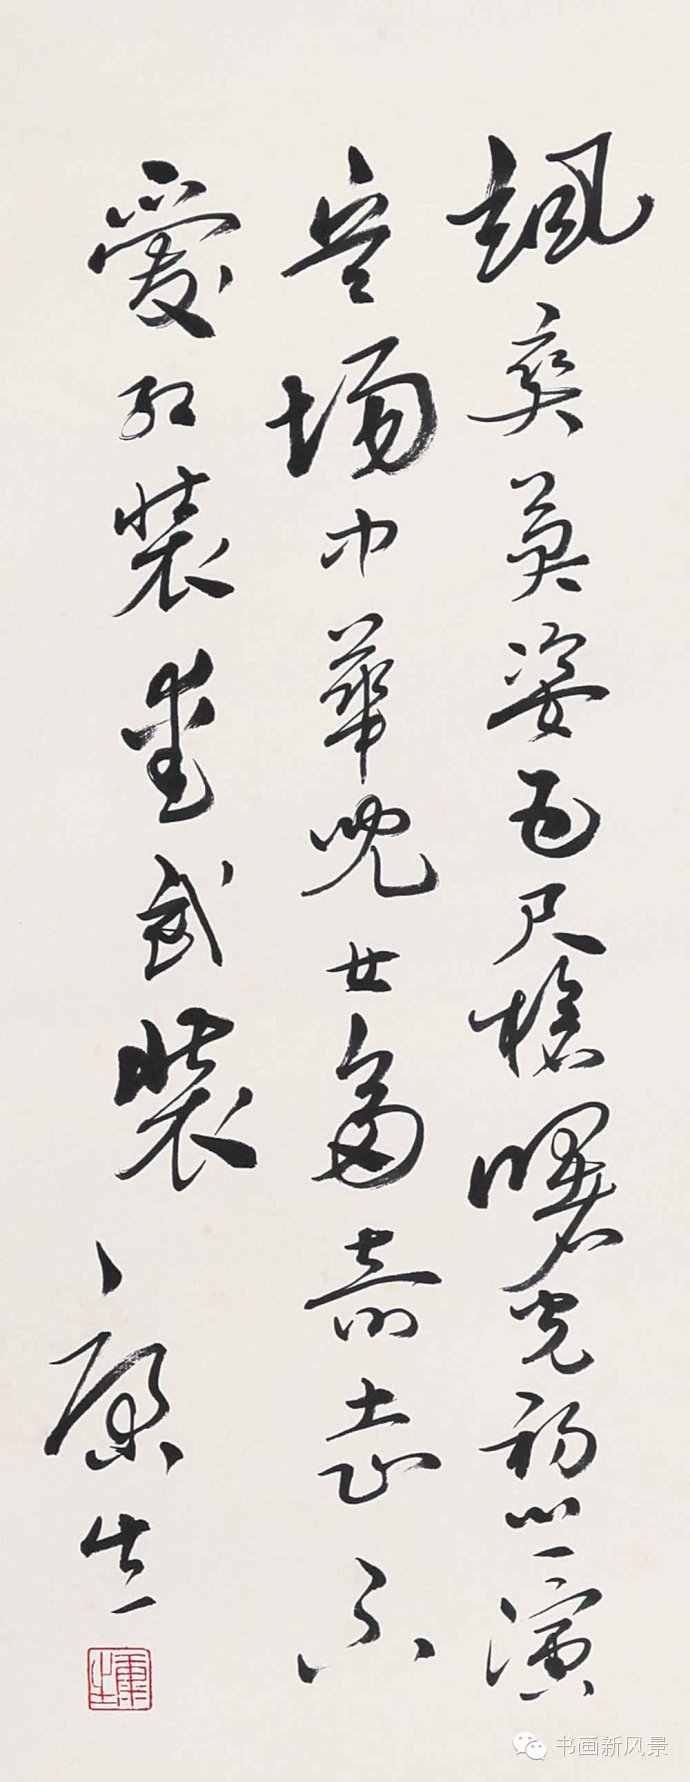 颯爽英姿五尺槍曙光初照演
兵場中華兒女多奇志不
愛紅裝愛武裝
康生
康生
书画新风景